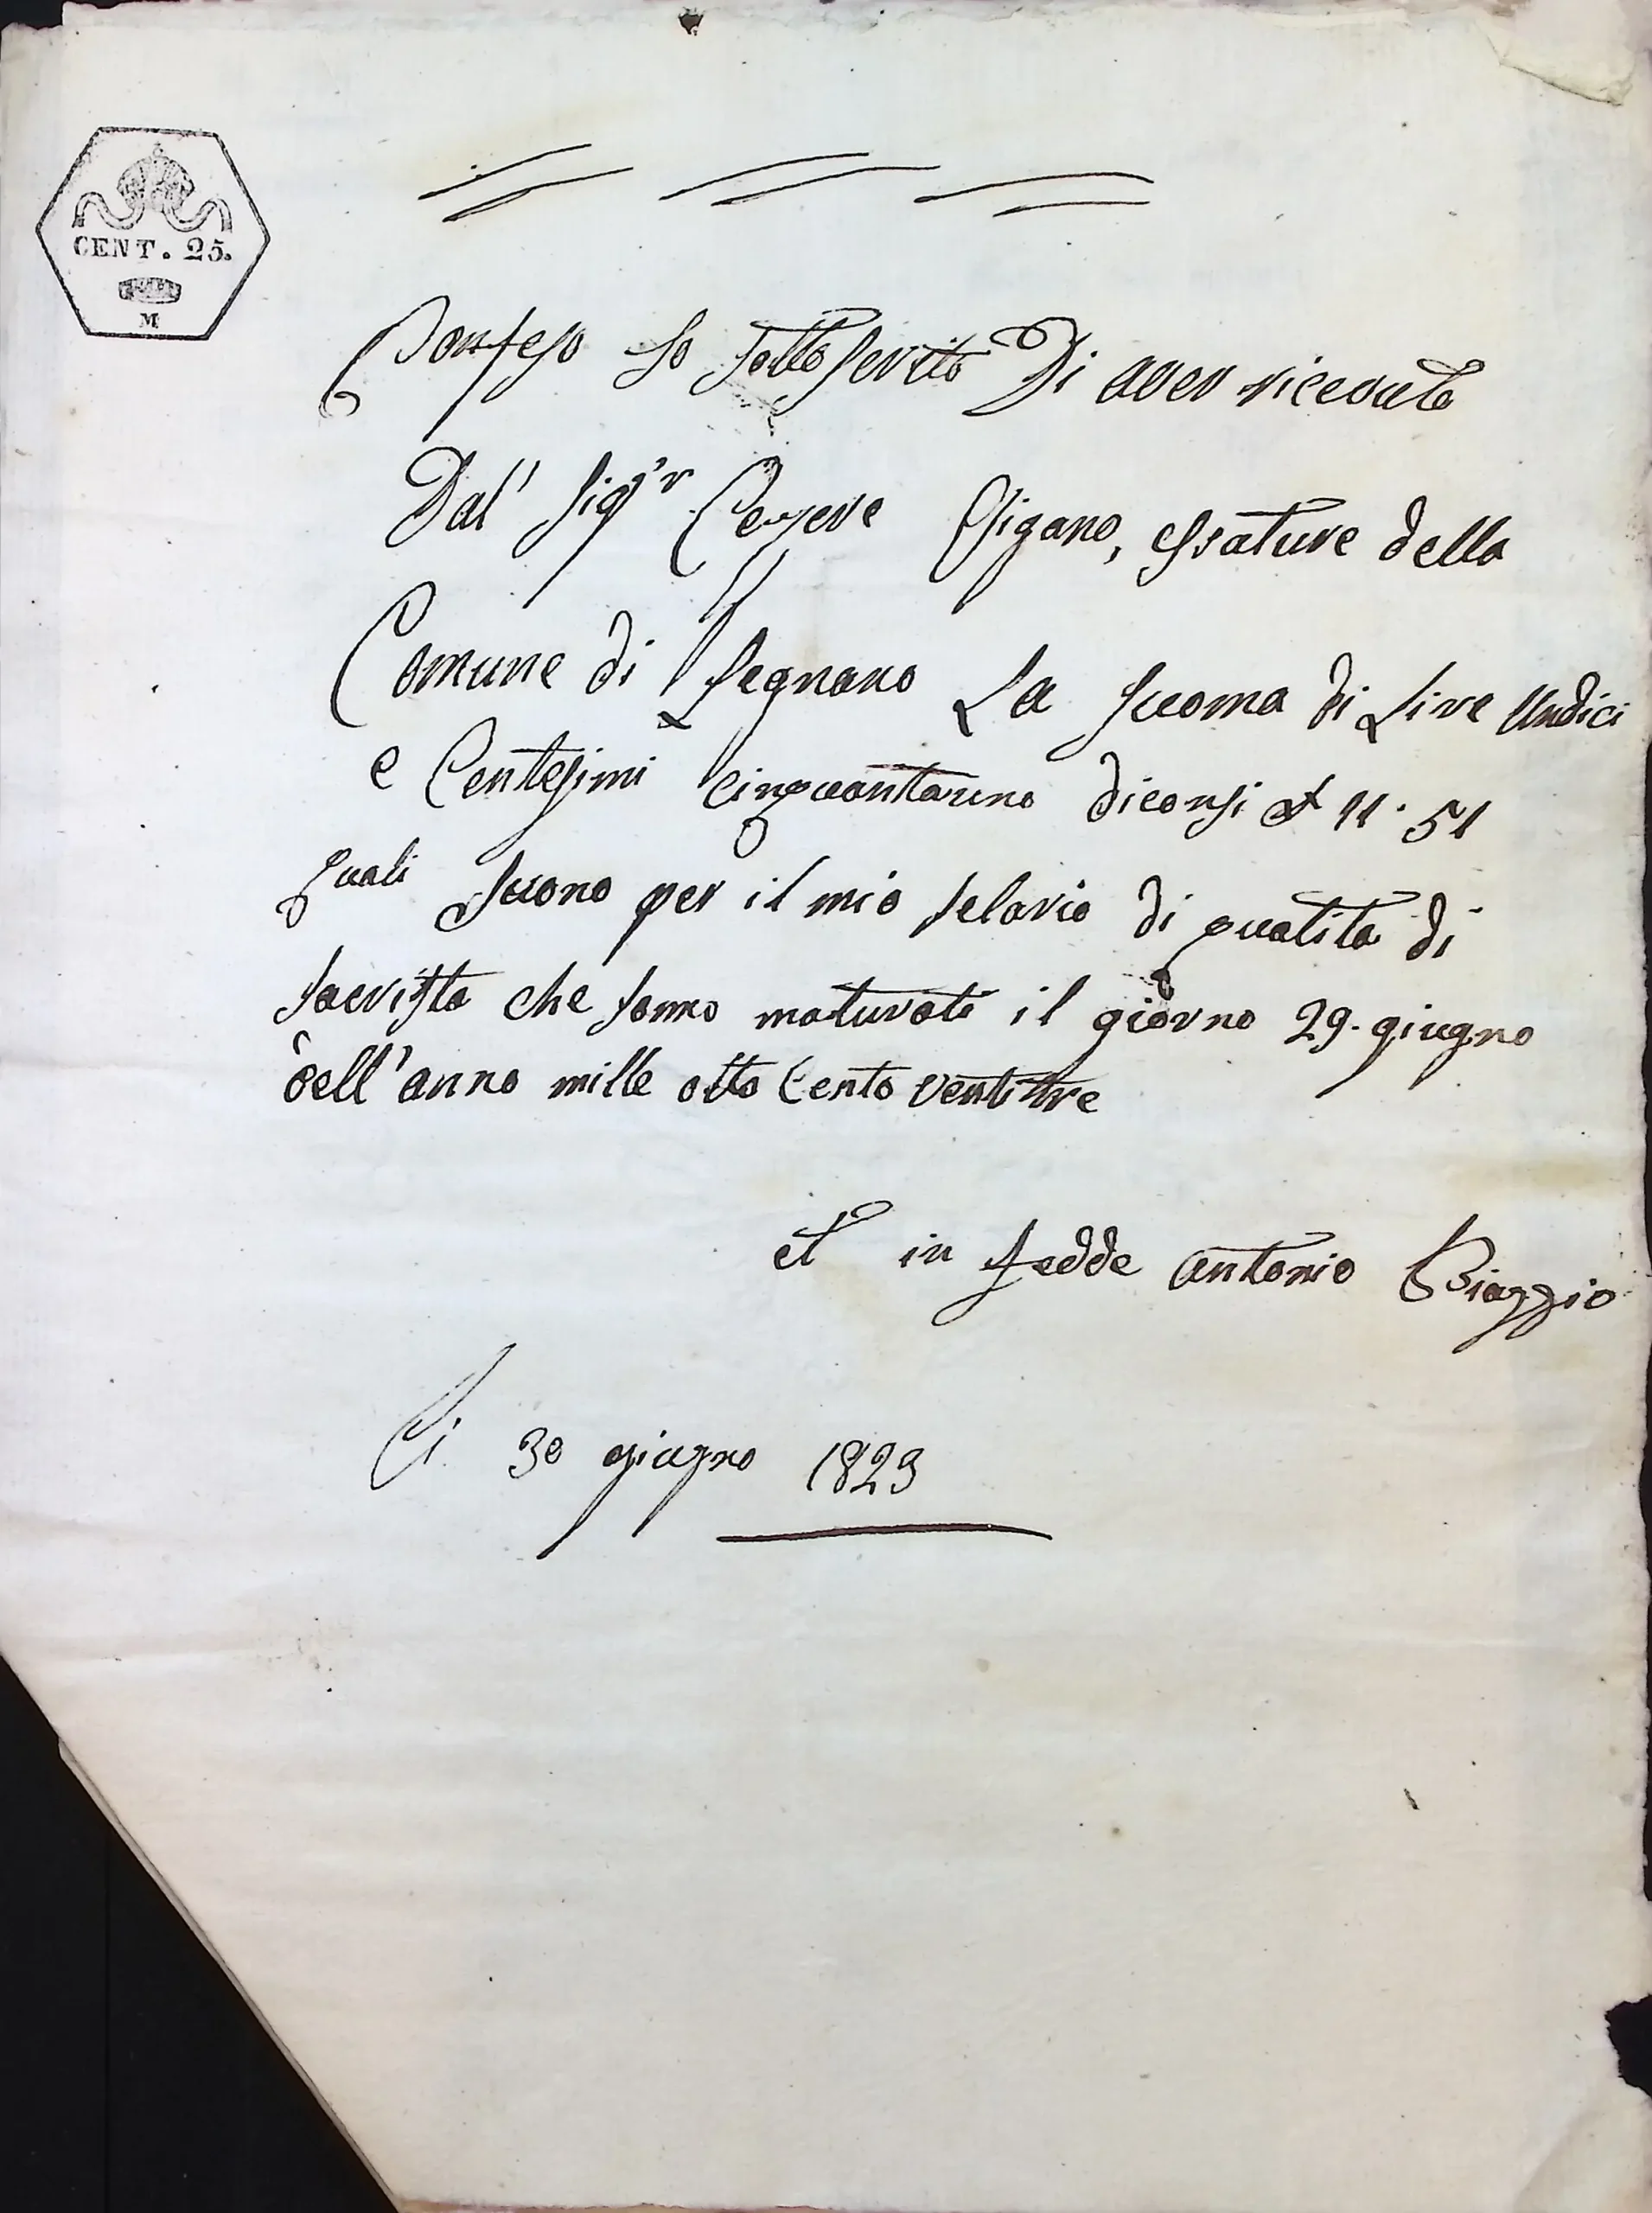 CENT. 25.
M
Confeso Io sotto scrito Di aver riceuuto
Dal' Sig.r Cesere Vigano, Esature della
Comune di Legnano La suoma di Lire Undici
e Centesimi cinquantauno diconsi £ 11. 51
quali suono per il mio selario di qualita di
sacrista che sanno maturati il giorno 29. giugno
dell'anno mille otto Cento ventitre
et in fedde Antonio Biaggio
Li 30 giugno 1823